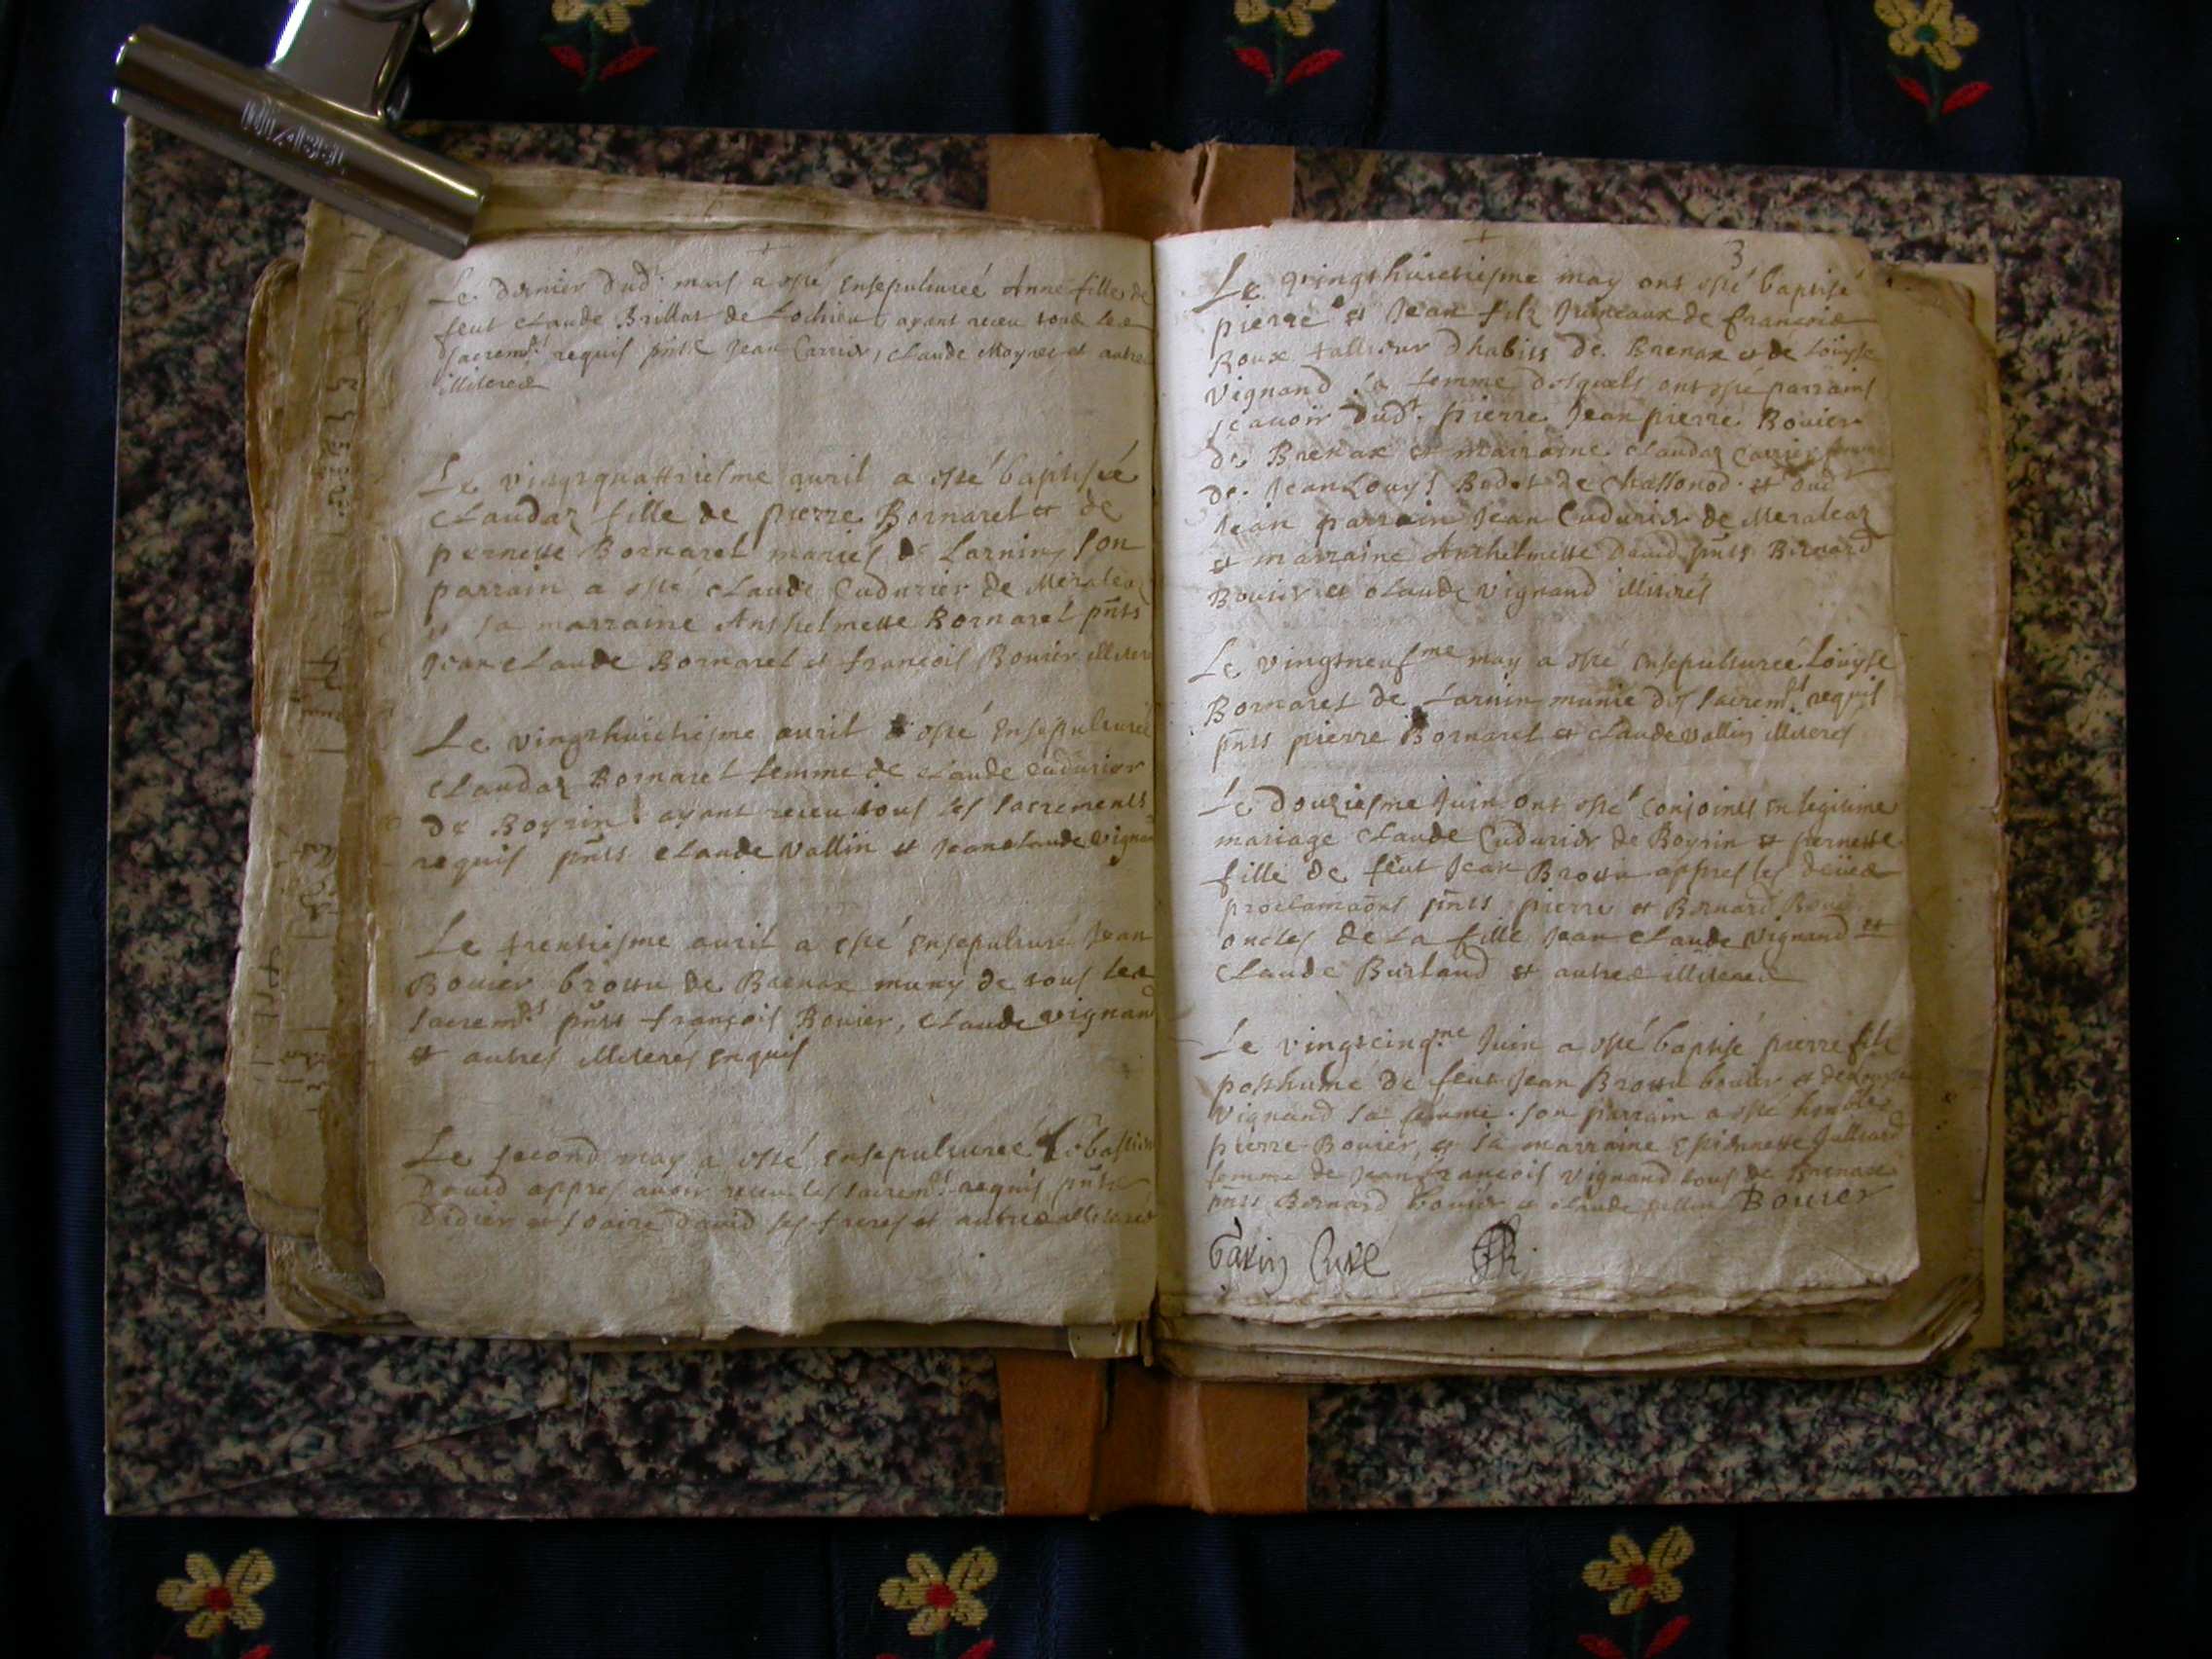 Le dernier dud. mars a esté ensepulturée Anne fille de
feut Claude Brillat de Lochieu, ayant receu tous les
sacrem.ts requis pñts Jean Carrier, Claude Moyret et autres
illiterés
Le vingtquattriesme avril a esté baptisée
Claudaz fille de pierre Bornarel et de
pernette Bornarel mariés de Larnin son
parrain a esté Claude Cudurier de Meraleaz
et sa marraine Anthelmette Bornarel pñts
Jean Claude Bornarel et françois Bouier illiterés
Le vingthuictiesme avril a esté ensepulturée
Claudaz Bornarel femme de Claude Cudurier
de Boyrin ayant receu tous les sacrements
requis pñts Claude Vallin et Jean Claude vignand
Le trentiesme avril a esté ensepulturé Jean
Bouier brottu de Brenax muny de tous les
sacrem.ts pñts françois Bouier, Claude vignand
et autres illiterés enquis
Le second may a esté ensepulturée
David appres avoir receu les sacrem.ts requis pñts
Didier et David ses freres et autres illiterés
3
Le vingthuictiesme may ont esté baptisé
pierre et Jean filz Jumeaux de francois
Roux tallieur dhabits de Brenax et de Loüyse
Vignand sa femme desquels ont esté parrains
scavoir dud.t pierre Jean pierre Bouier
de Brenax et marraine Claudaz Carrier femme
de Jean Louys Bodet de Chassonod et dud.t
Jean parrain Jean Cudurier de Meraleaz
et marraine Anthelmette David pñts Bernard
Bouier et Claude vignand illiterés
Le vingtneufme may a esté ensepulturée Loüyse
Bornarel de Larnin munie des sacrem.ts requis
pñts pierre Bornarel et Claude vallin illiterés
Le douziesme Juin ont esté conjoincts en legitime
mariage Claude Cudurier de Boyrin et pernette
fille de feut Jean Brottu appres les deües
proclamaõns pñts pierre et Bernard Bouier
oncles de la fille Jean Claude vignand et
Claude Burland et autres illiterés
Le vingtcinq.me Juin a esté baptisé pierre fils
posthume de feut Jean Brottu bouier et de Loüyse
vignand sa femme son parrain a esté honble
pierre Bouier, et sa marraine Estiennette Julliard
femme de Jean françois vignand tous de Brenax
pñts Bernard bouier et Claude vallin Bouier
Curé